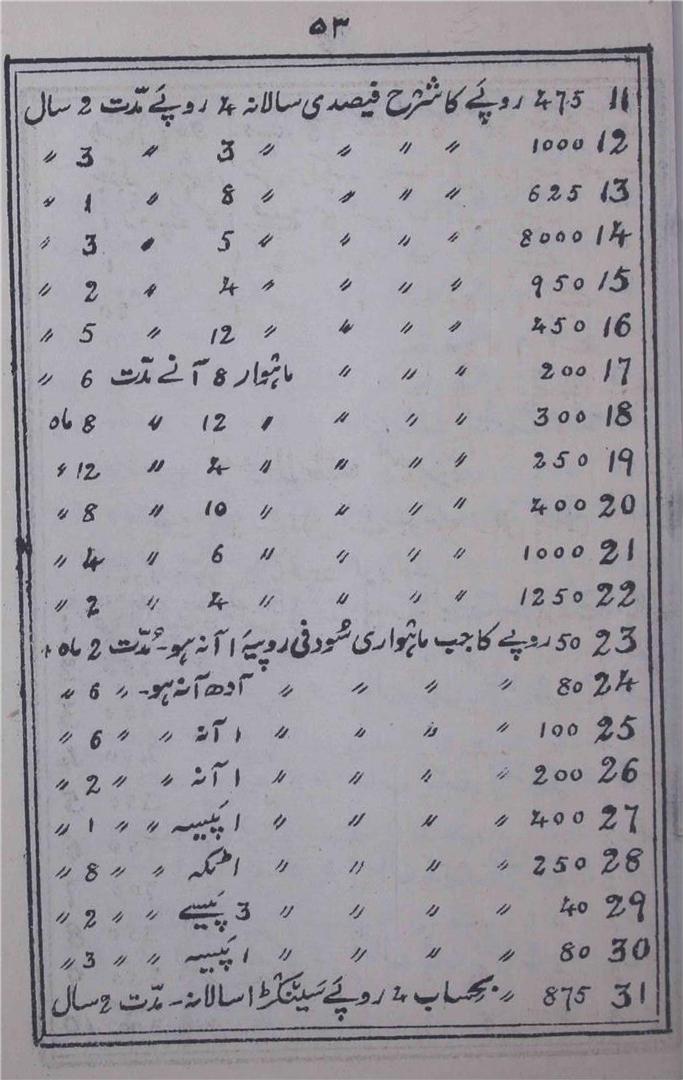 ۵۳
11 475 روپئے کا شرح فیصدی سالانہ 4 روپئے مدّت 2 سال
12 1000 〃 〃 〃 〃 3 〃 3 〃
13 625 〃 〃 〃 〃 8 〃 1 〃
14 8000 〃 〃 〃 〃 5 〃 3 〃
15 950 〃 〃 〃 〃 4 〃 2 〃
16 450 〃 〃 〃 〃 12 〃 5 〃
17 200 〃 〃 〃 ماہوار 8 آنے مدّت 6 〃
18 300 〃 〃 〃 〃 12 〃 8 ماہ
19 250 〃 〃 〃 〃 4 〃 12 〃
20 400 〃 〃 〃 〃 10 〃 8 〃
21 1000 〃 〃 〃 〃 6 〃 4 〃
22 1250 〃 〃 〃 〃 4 〃 2 〃
23 50 روپے کا جب ماہواری سُود فی روپیہ 1 آنہ ہو۔ مُدّت 2 ماہ 〃
24 80 〃 〃 〃 〃 آدھ آنہ ہو۔ 〃 6 〃
25 100 〃 〃 〃 〃 1 آنہ 〃 〃 6 〃
26 200 〃 〃 〃 〃 1 آنہ 〃 〃 2 〃
27 400 〃 〃 〃 〃 1 پَیسہ 〃 〃 1 〃
28 250 〃 〃 〃 〃 1 ٹکہ 〃 〃 8 〃
29 40 〃 〃 〃 〃 3 پَیسے 〃 〃 2 〃
30 80 〃 〃 〃 〃 1 پَیسہ 〃 〃 3 〃
31 875 〃 بحساب 4 روپئے سَینکڑا سالانہ۔ مدّت 2 سال